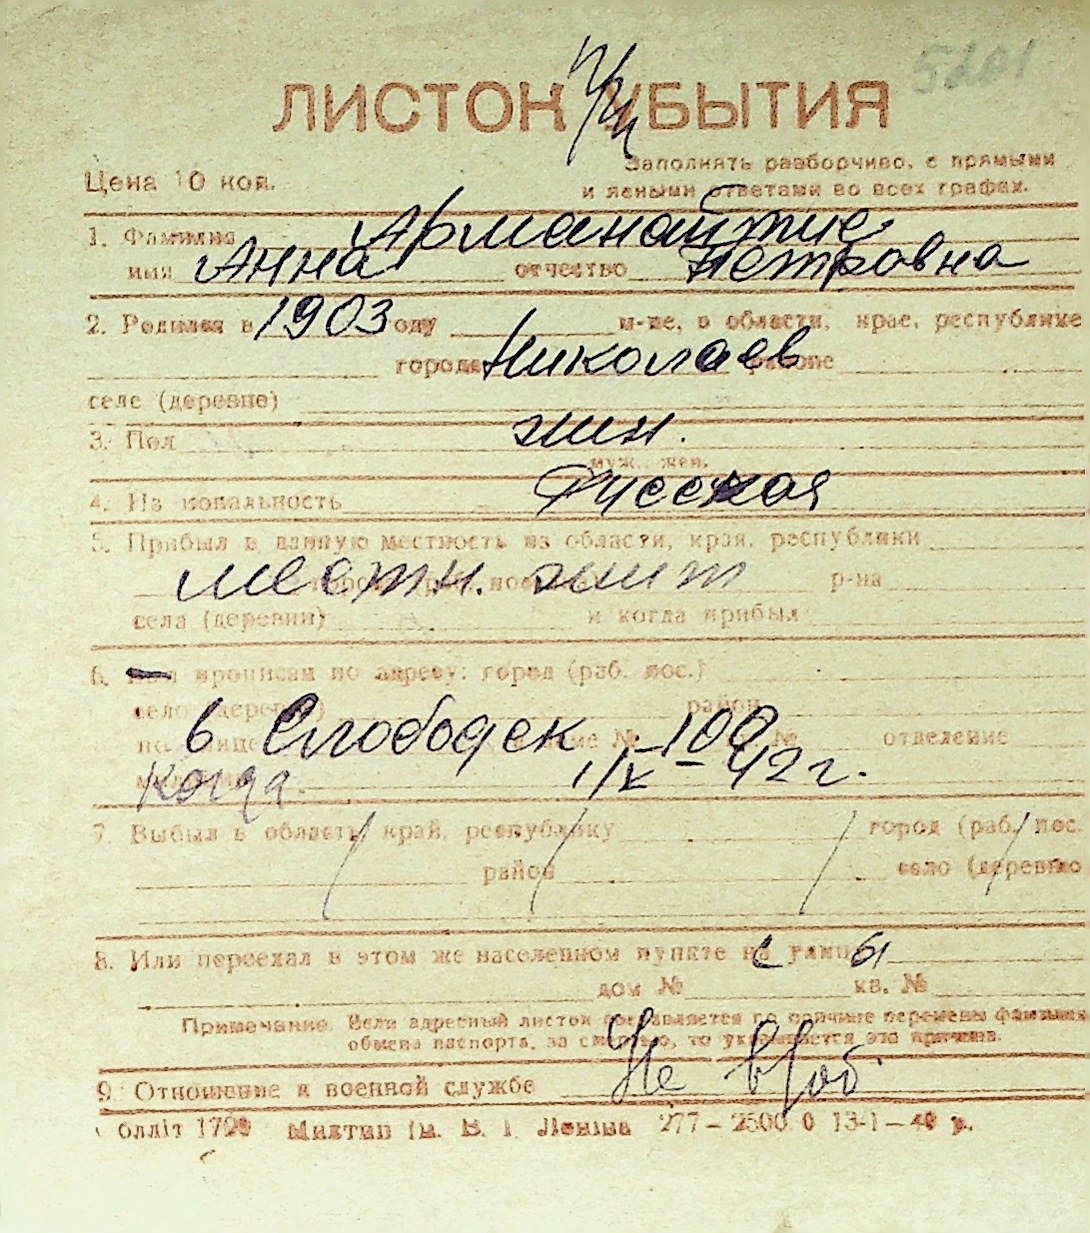 5201
ЛИСТОК УБЫТИЯ
Цена 10 коп.
Заполнять разборчиво, с прямыми
и ясными ответами во всех графах.
1. Фамилия Арманайтие
имя Анна отчество Петровна
2. Родился в 1903 году м-це, в области, крае, республике
городе Николаев районе
селе (деревне)
3. Пол жин.
муж., жен.
4. Национальность Русская
5. Прибыл в данную местность из области, края, республики
местн. жит р-на
села (деревни) и когда прибыл
6. прописан по адресу: город (раб. пос.)
село (деревня) район
в Слободек 100 № отделение
Когда 1/X – 42 г.
7. Выбыл в область, край, республику город (раб. пос.
район село (деревню
8. Или переехал в этом же населенном пункте на улицы
дом № кв. №
Примечание. Если адресный листок составляется по причине перемены фамилии
обмена паспорта, за смертью, то указывается эта причина.
9. Отношение к военной службе Не в/об.
олліт 1729 Миктип Ім. В. І. Леніна 277–2500 0 13-1–40 р.